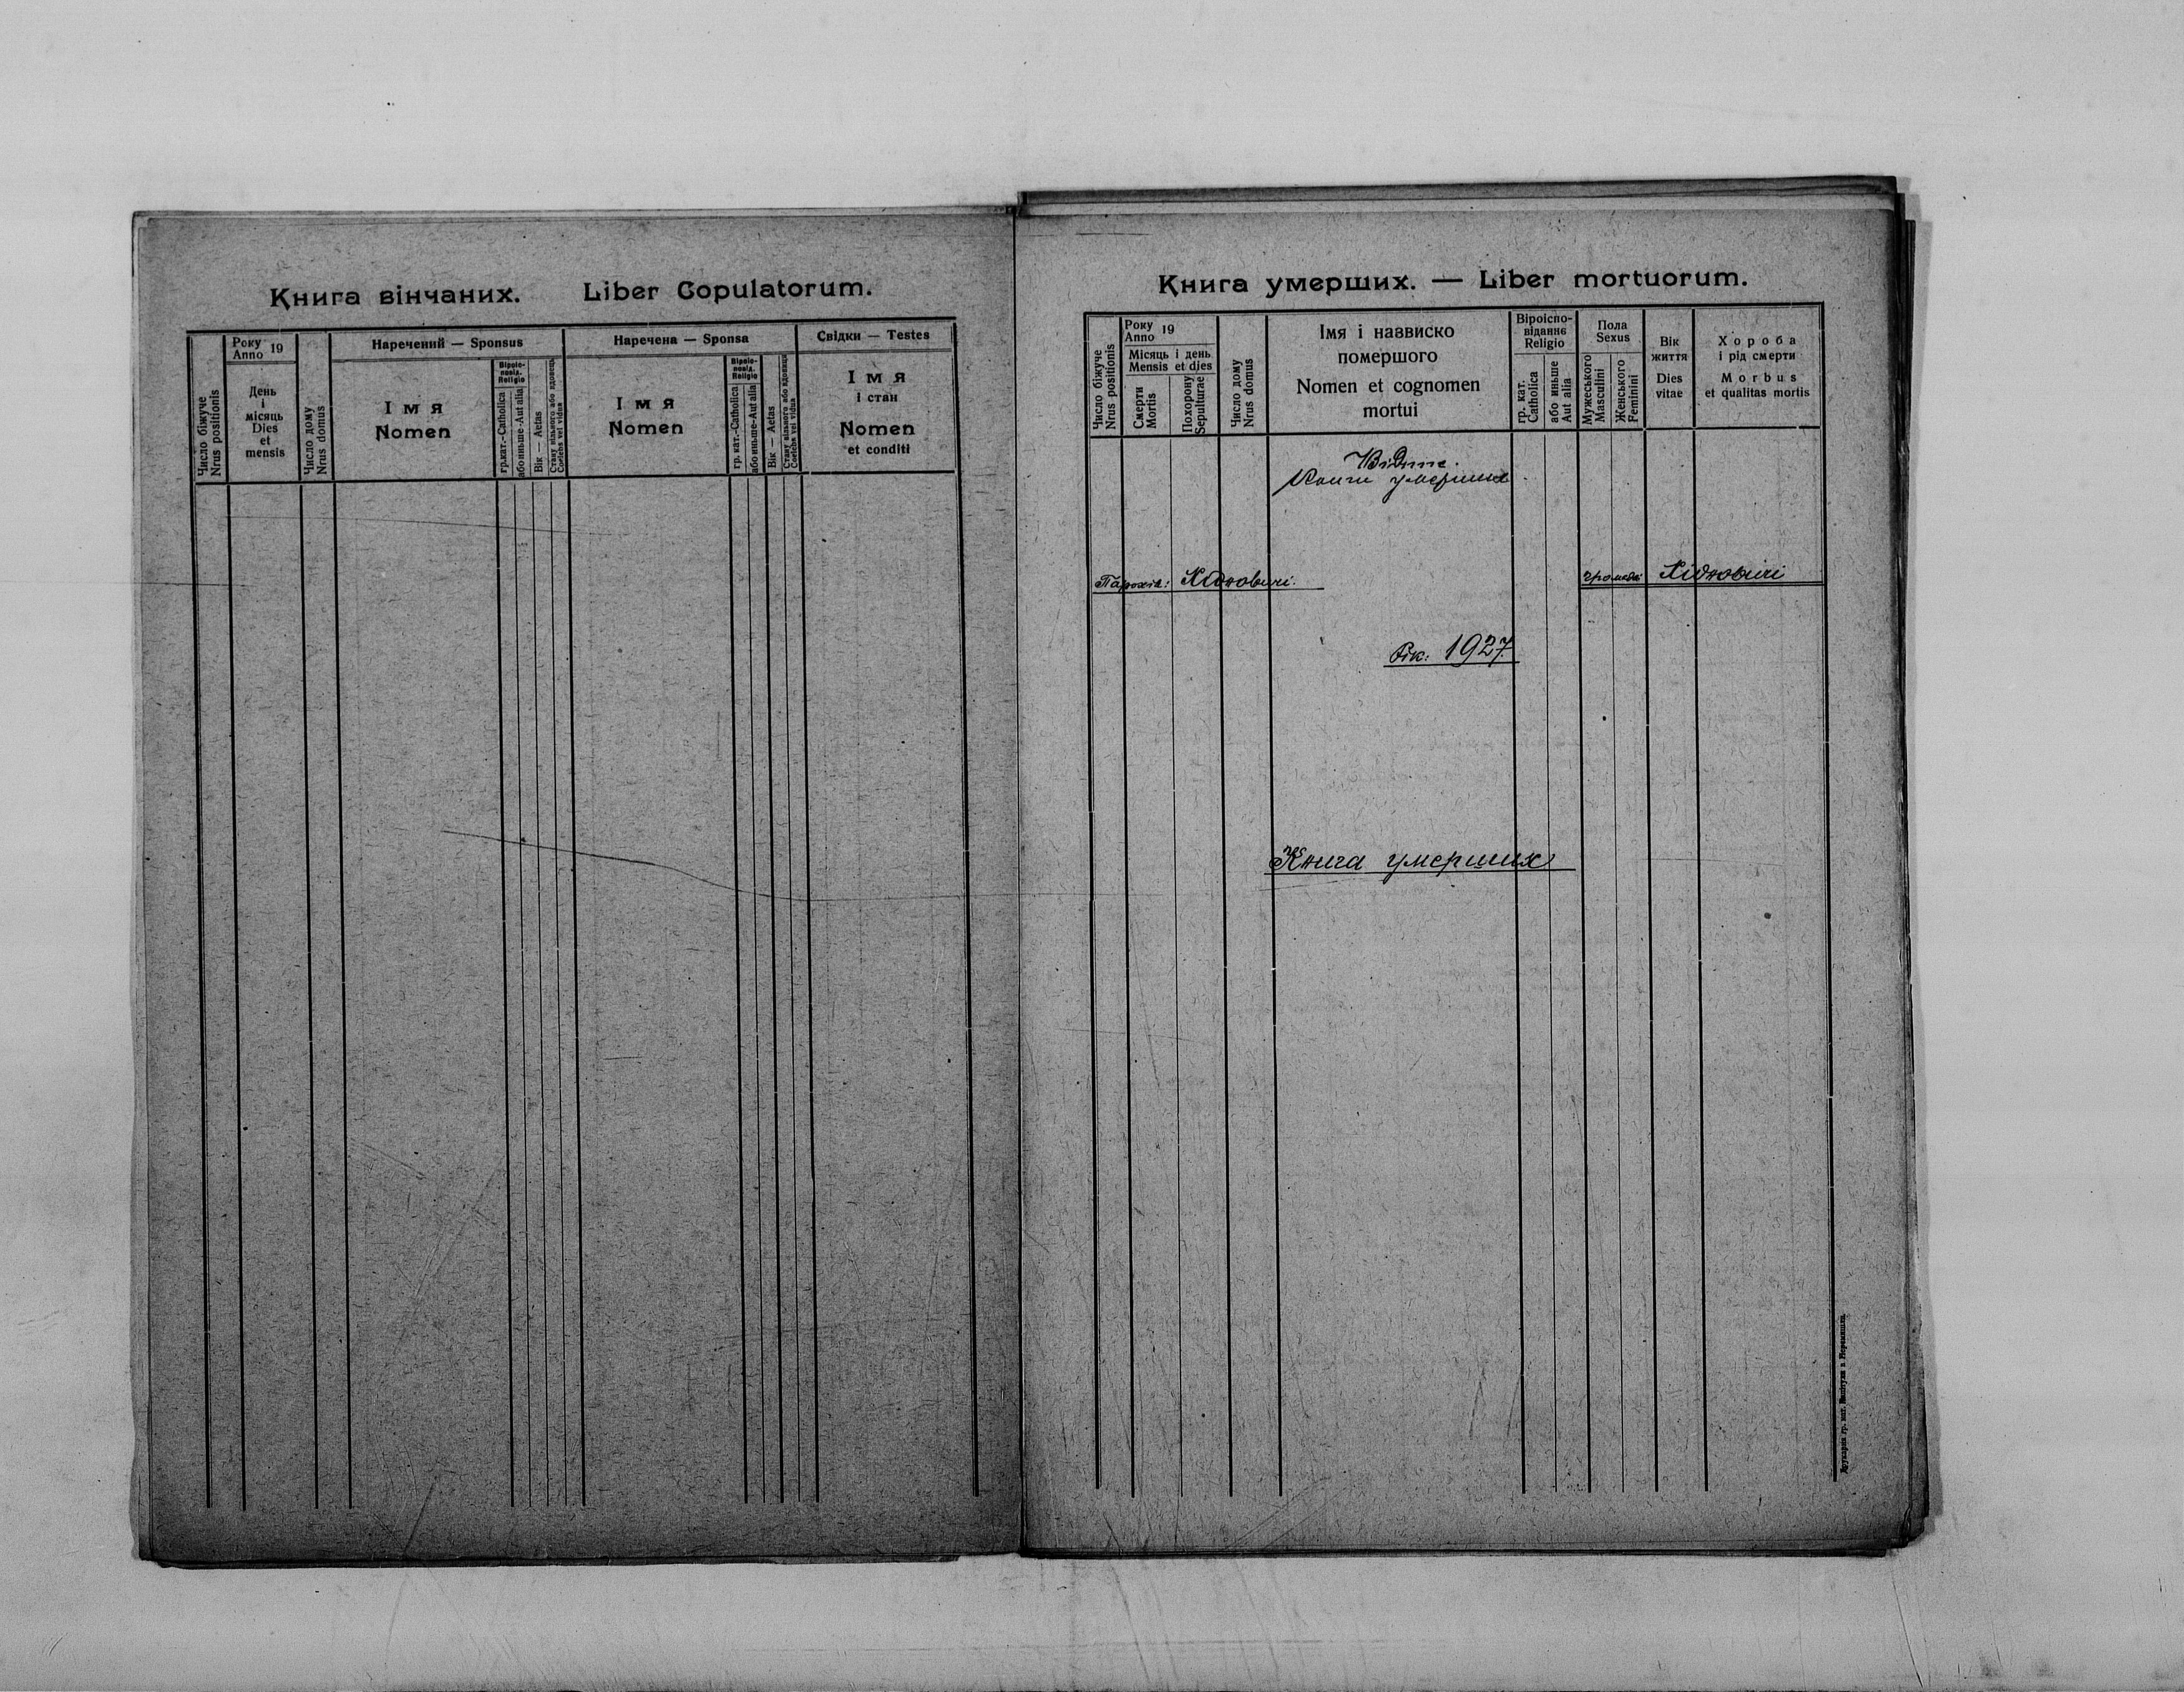 Книга вінчаних. Liber Copulatorum.
Число біжуче
Nrus positionis
Року
Anno 19
День
і
місяць
Dies
et
mensis
Число дому
Nrus domus
Наречений — Sponsus
Імя
Nomen
Віроіс-
повід.
Religio
гр.кат.-Catholica
або иньше-Aut alia
Вік — Aetas
Стану вільного або вдовець
Coelebs vel vidua
Наречена — Sponsa
Імя
Nomen
Віроіс-
повід.
Religio
гр. кат.-Catholica
або иньше-Aut alia
Вік — Aetas
Стану вільного або вдовиця
Coelebs vel vidua
Свідки — Testes
Імя
і стан
Nomen
et conditi
Книга умерших. — Liber mortuorum.
Число біжуче
Nrus positionis
Року
Anno 19
Місяць і день
Mensis et dies
Смерти
Mortis
Похорону
Sepulturae
Число дому
Nrus domus
Імя іназвиско
помершого
Nomen et cognomen
mortui
Віроіспо-
віданнє
Religio
гр. кат.
Catholica
або иньше
Aut alia
Пола
Sexus
Мужеського
Masculini
Женського
Feminini
Вік
життя
Dies
vitae
Хороба
і рід смерти
Morbus
et qualitas mortis
Книги умерших
Парохія: Хідновичі.
громада: Хідновичі
Рік: 1927.
Книга умерших